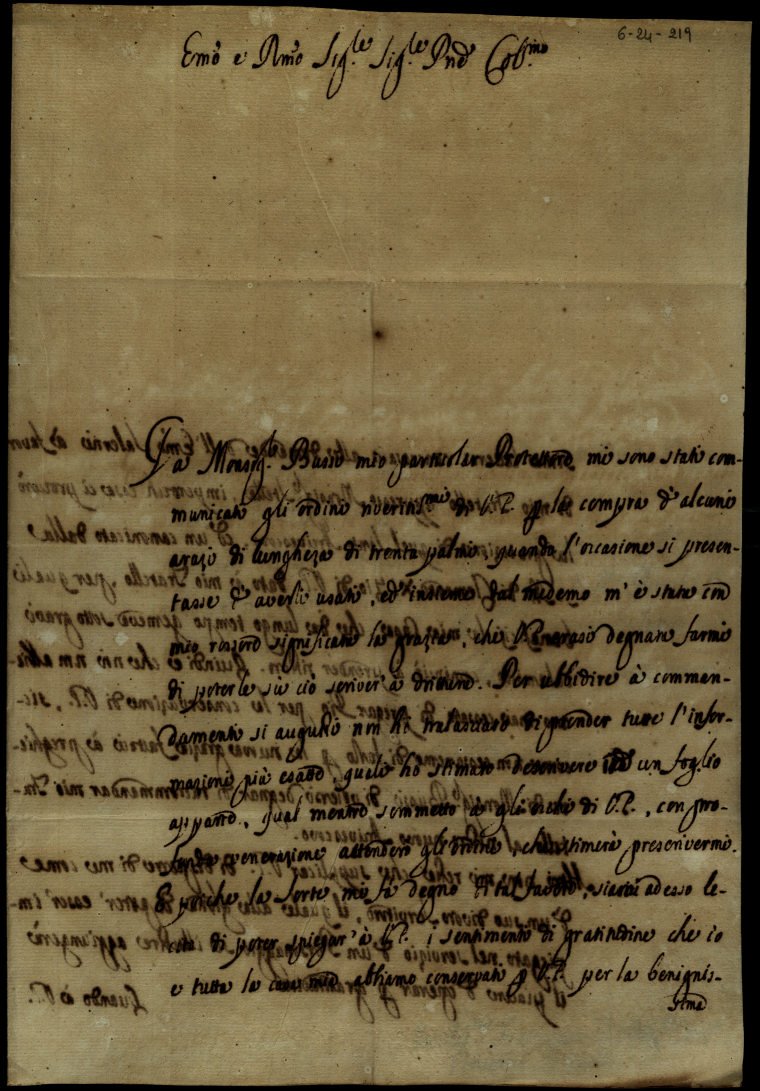 6-24-219
Emõ e Rmõ Sig.re Sig.re Pnẽ Col.mo
Da Monsig.r Bussi mio particolar Protettore mi sono stati com-
municati gli ordini riveritis.mi di V.E. p la compra d'alcuni
arazi di lunghezza di trenta palmi, quando l'occasione si presen-
tasse d'averli usati, ed insieme dal medemo m'è stata con
mio rossore significata la grazia, che si degnata farmi
di poterle sù ciò scriver à. Per ubbidire à comman-
damenti si augusti non hò tralasciato di prender tutte l'infor-
mazioni più esatte, quali hò stimato descrivere in un foglio
à parte, qual mentre sommetto à gli occhi di V.E., con pro-
fonda venerazione attenderò gli ordini, che stimerà prescrivermi.
E poiche la sorte mi fà degno di tal favore, siami adesso le-
cito di poter spiegar' à V.E. i sentimenti di gratitudine che io
e tutta la casa mia abbiamo conservati p V.E. per la benignis-
sima